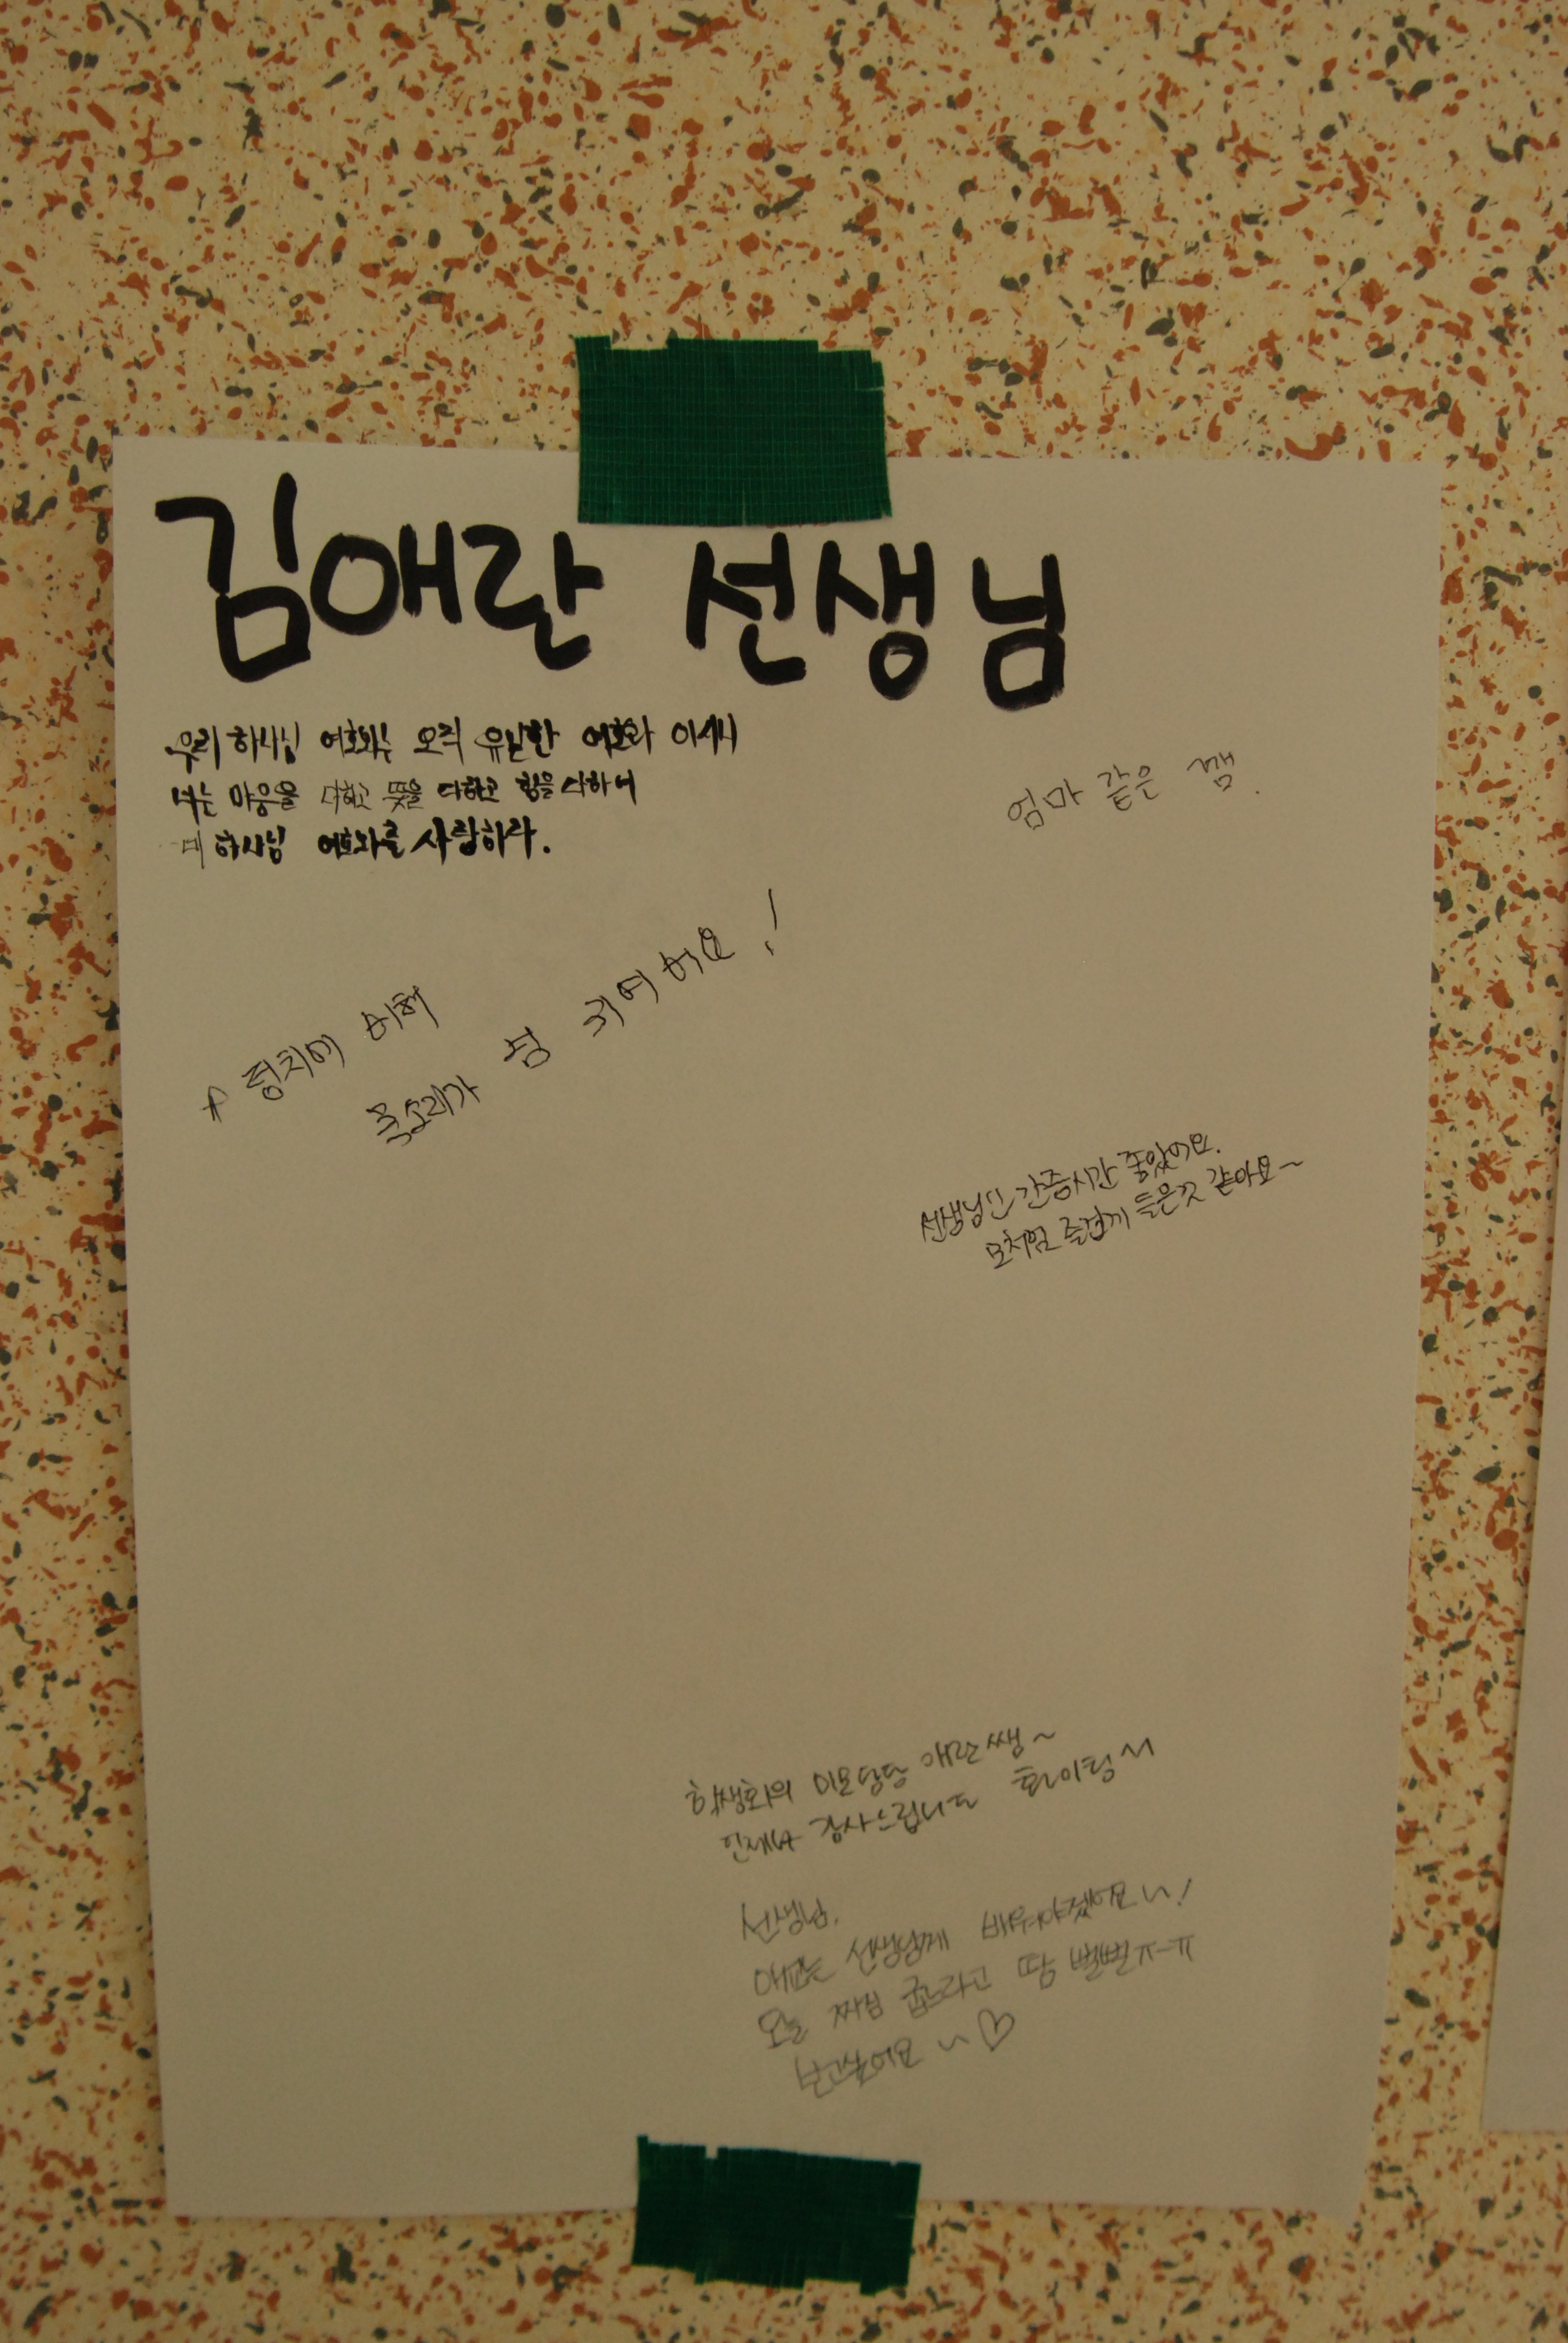 김애란 선생님
우리 하나님 여호와는 오직 유일한 여호와 이시니
너는 마음을 다하고 뜻을 다하고 힘을 다하여
네 하나님 여호와를 사랑하라.
엄마 같은 쌤.
덩치에 비해
목소리가 넘 귀여버요!
선생님 간증시간 좋았어요.
모처럼 즐겁게 들은것 같아요~
학생회의 미모담당 애란쌤~
언제나 감사드립니다 화이팅~
선생님.
애교는 선생님께 배워야겠어요~!
오늘 짜님 굽느라고 땀 뻘뻘ㅠ-ㅠ
보고싶어요~♡